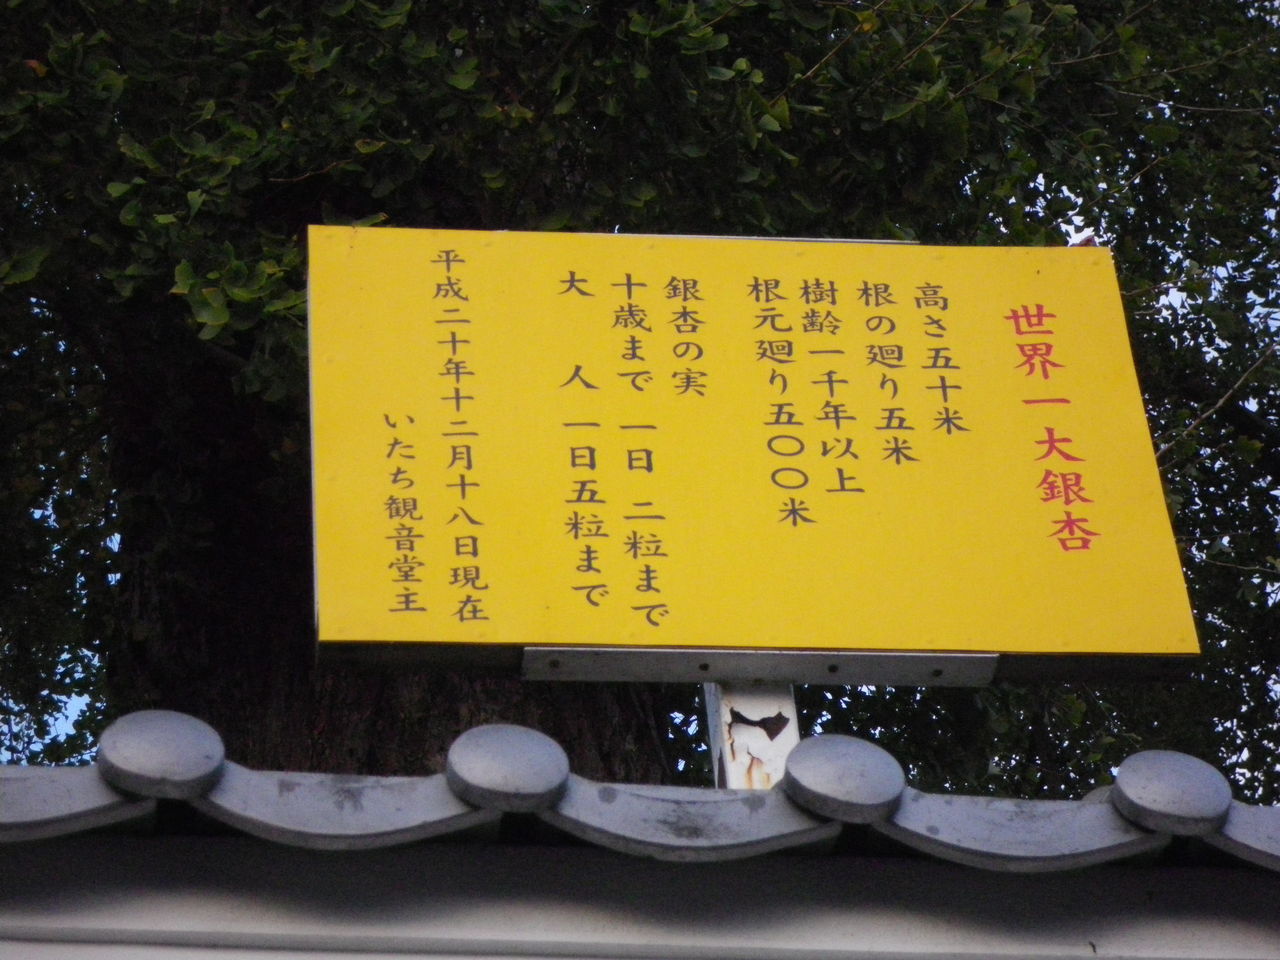 世界一大銀杏
高さ五十米
根の廻り五米
樹齢一千年以上
根元廻り五〇〇米
銀杏の実
十歳まで 一日 二粒まで
大 人 一日五粒まで
平成二十年十二月十八日現在
いたち観音堂主